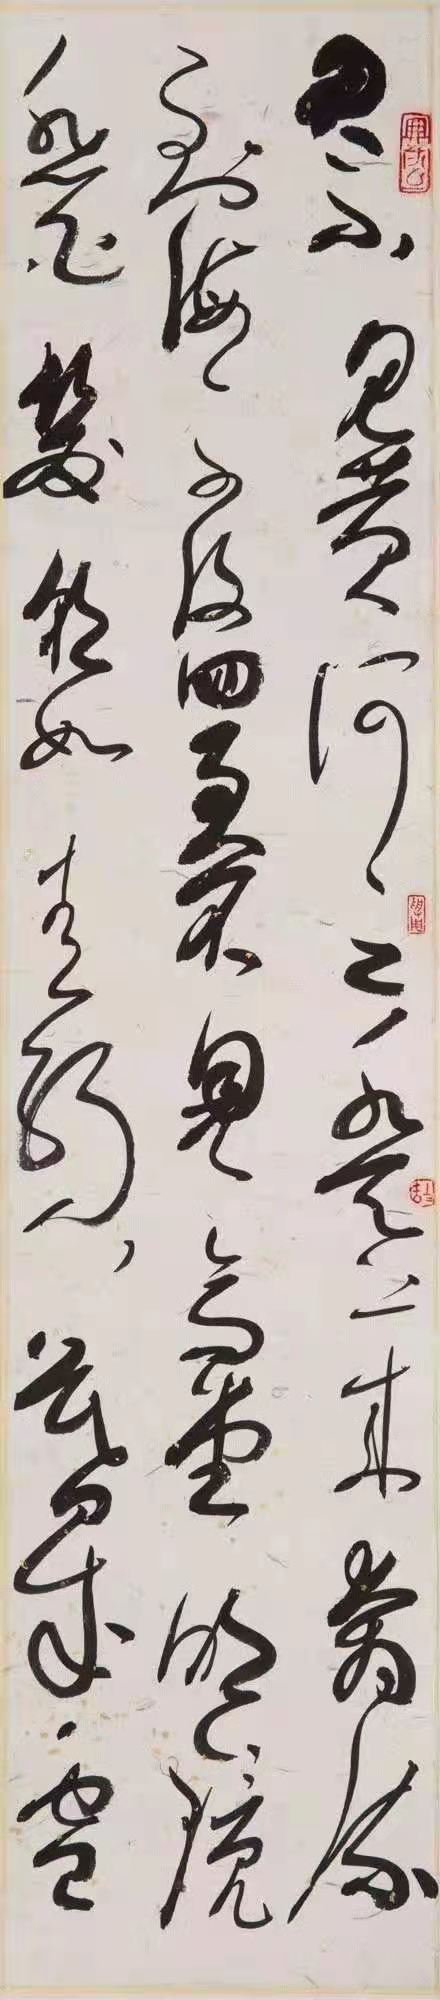 君不見黃河之水天上来奔流
到海不復回君不見高堂明鏡
悲白髮朝如青絲暮成雪